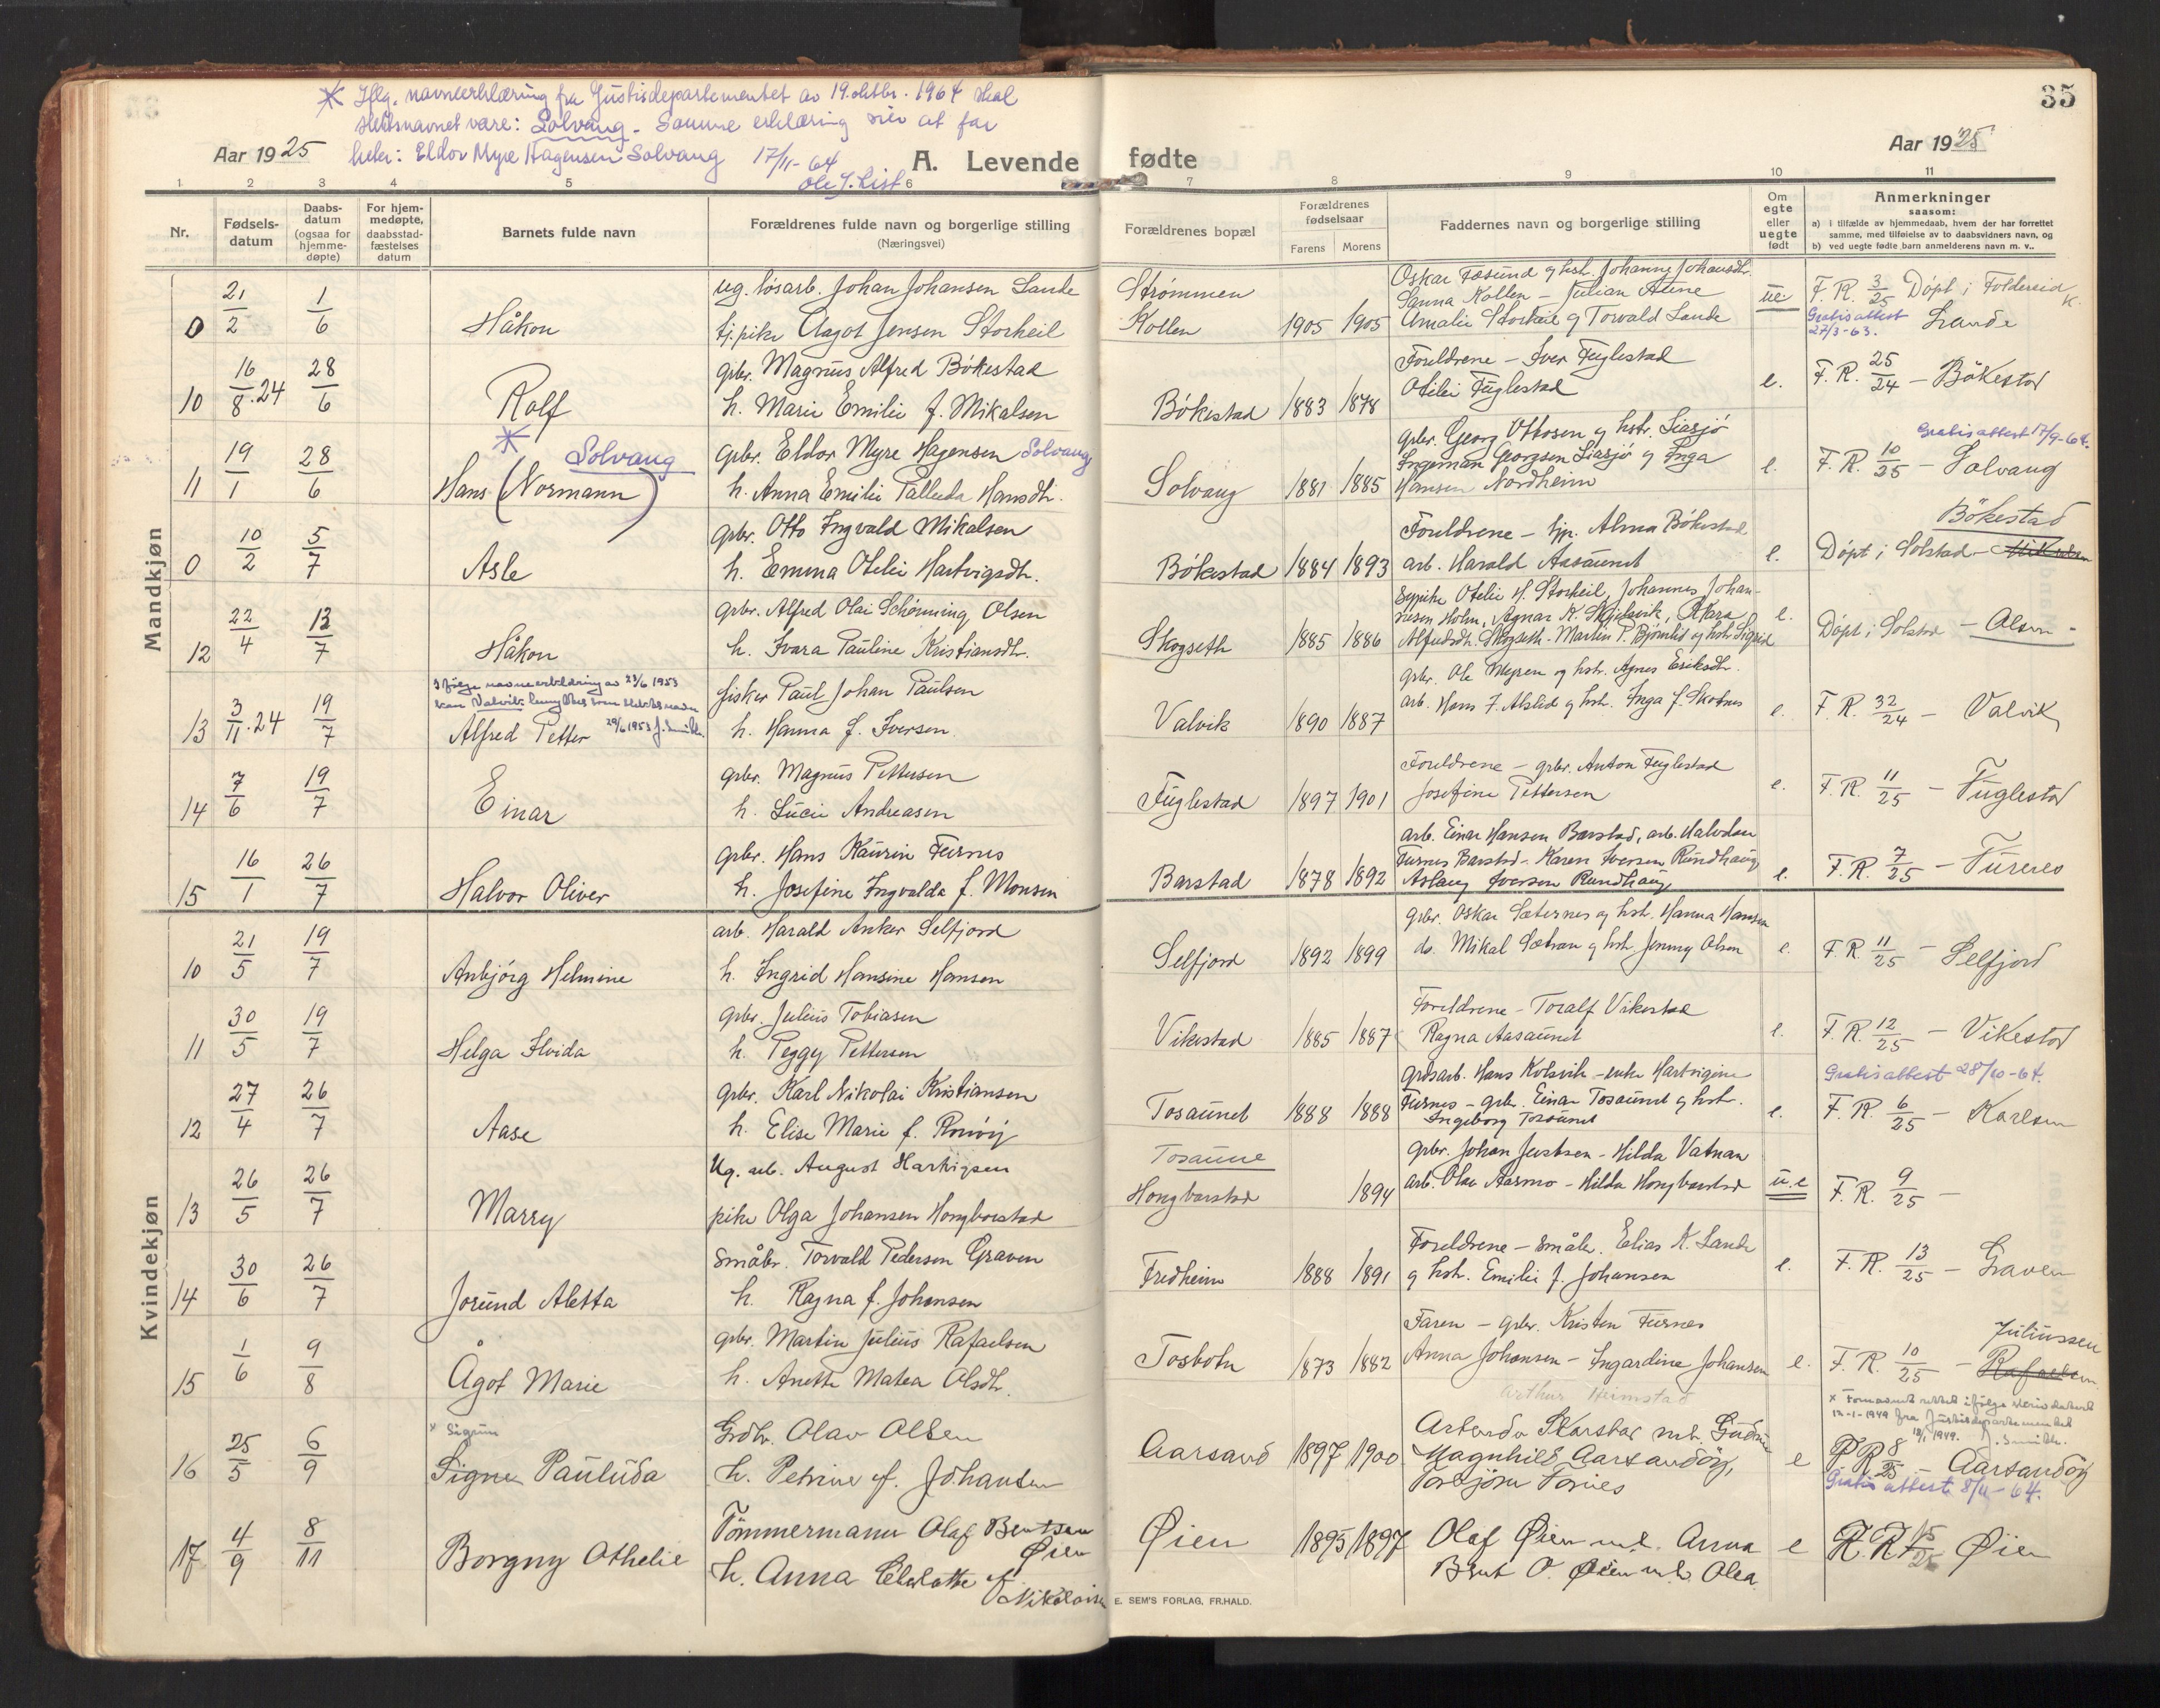 * Iflg. navneerklæring fra Justisdepartementet av 19. oktbr. 1964 skal
slektsnavnet være: Solvang. Samme erklæring sier at far
heter: Eldor Myre Hagensen Solvang 17/11-64
Ole J. List
Aar 1925
A. Levende fødte
35
Aar 1925
1 2 3 4 5 6 7 8 9 10 11
Nr.
Fødsels-datum
Daabs-datum (ogsaa for hjemme-døpte)
For hjem-medøpte, daabsstad-fæstelses datum
Barnets fulde navn
Forældrenes fulde navn og borgerlige stilling
(Næringsvei)
Forældrenes bopæl
Forældrenes fødselsaar
Farens Morens
Faddernes navn og borgerlige stilling
Om egte eller uegte født
Anmerkninger
saasom:
a) i tilfælde av hjemmedaab, hvem der har forrettet
samme, med tilføielse av to daabsvidners navn, og
b) ved uegte fødte barn anmelderens navn m. v..
Mandkjøn
0 21/2 1/6 Håkon
ug. løsarb. Johan Johansen Lande
tj.pike Aagot Jensen Storheil
Strømmen
Kollen 1905 1905
Oskar Fosund og hstr. Johanne Johansdtr.
Sanna Kollen - Julian Alene
Amalie Storheil og Torvald Lande
ue
F. R. 3/25 Döpt i Foldereid k.
Gratisattest 27/3-63. Lande
10 16/8.24 28/6 Rolf
gbr. Magnus Alfred Bökestad
h. Marie Emilie f. Mikalsen
Bökestad 1883 1878
Foreldrene - Iver Fuglestad
Otilie Fuglestad
e.
F. R. 25/24 - Bökestad
11 19/1 28/6 Hans (Normann) * Solvang
gbr. Eldor Myre Hagensen Solvang
h. Anna Emilie Palleda Hansdtr.
Solvang 1881 1885
gbr. Georg Ottosen og hstr. Liasjö
Ingeman Georgsen Liasjö og Inga
Hansen Nordheim
e.
Gratisattest 17/9-64.
F. R. 10/25 - Solvang
0 10/2 5/7 Asle
gbr. Otto Ingvald Mikalsen
h. Emma Otelie Hartvigsdtr.
Bökestad 1884 1893
Foreldrene - tjp. Alma Bökestad
arb. Harald Aasaunet
e.
Bökestad
Döpt i Solstad - Mikalsen
12 22/4 13/7 Håkon
gbr. Alfred Olai Schönning Olsen
h. Ivara Pauline Kristiansdtr.
Skogseth 1885 1886
sypike Otelie H. Storheil, Johannes Johan-
nesen Holm, Agnar K. Skjelsvik, Kara
Alfredsdtr. Skogseth - Martin P. Bjørnlid og hstr. Sigrid
e.
Döpt i Solstad - Olsen -
13 3/11.24 19/7
I følge navneerklæring av 23/6 1953
kan Valvik benyttes som slektsnavn
29/6 1953 J. Smith.
Alfred Petter
fisker Paul Johan Paulsen
h. Hanna f. Iversen
Valvik 1890 1887
gbr. Ole Myren og hstr. Agnes Eriksdtr.
arb. Hans F. Alstad og hstr. Inga f. Skotnes
e.
F. R. 32/24 - Valvik
14 7/6 19/7 Einar
gbr. Magnus Pettersen
h. Lucie Andreasen
Fuglestad 1897 1901
Foreldrene - gbr. Anton Fuglestad
Josefine Pettersen
e.
F. R. 11/25 - Fuglestad
15 16/1 26/7 Halvor Oliver
gbr. Hans Kaurin Furnes
h. Josefine Ingvalda f. Monsen
Barstad 1878 1892
arb. Einar Hansen Barstad, arb. Halvdan
Furnes Barstad - Karen Iversen Rundhaug
Aslaug Iversen Rundhaug
e.
F. R. 7/25 - Furenes
Kvindekjøn
10 21/5 19/7 Anbjörg Helmine
arb. Harald Anker Selfjord
h. Ingrid Hansine Hansen
Selfjord 1892 1899
gbr. Oskar Sæternes og hstr. Hanna Hansen
do. Mikal Sætran og hstr. Jenny Olsen
e.
F. R. 11/25 - Selfjord
11 30/5 19/7 Helga Elvida
gbr. Julius Tobiasen
h. Peggy Pettersen
Vikestad 1885 1887
Foreldrene - Toralf Vikestad
Ragna Aasaunet
e.
F. R. 12/25 - Vikestad
12 27/4 26/7 Aase
gbr. Karl Nikolai Kristiansen
h. Elise Marie f. Rönöy
Tosaunet 1888 1888
grdsarb. Hans Kolsvik - enke Hartvigine
Furnes - gbr. Einar Tosaunet og hstr.
Ingeborg Tosaunet
e.
Gratisattest 28/10-64.
F. R. 6/25 - Karlsen
13 26/5 26/7 Marry
Ug. arb. August Hartvigsen
pike Olga Johansen Hongbarstad
Tosaune
Hongbarstad 1894
gbr. Johan Justsen - Hilda Vatnan
arb. Olav Aasmo - Hilda Hongbarstad
u.e
F. R. 9/25 -
14 30/6 26/7 Jorund Aletta
småbr. Torvald Pedersen Graven
h. Ragna f. Johansen
Fredheim 1888 1891
Foreldrene - småbr. Elias K. Lande
og hstr. Emilie f. Johansen
e.
F. R. 13/25 - Graven
15 1/6 9/8 Ågot Marie
gbr. Martin Julius Rafaelsen
h. Anette Matea Olsdtr.
Tosbotn 1873 1882
Faren - gbr. Kristen Furnes
Anna Johansen - Ingardine Johansen
e.
Juliussen
F. R. 10/25 - Rafaelsen
16 25/5 6/9
x Sigrun
Signe Pauluda
Grdbr. Olav Olsen
h. Petrine f. Johansen
Aarsand 1897 1900
Arthur Heimstad
Karstar m.h. Gudrun
Magnhild Aarsandöy,
Torbjörn Fornes
e
x Fornavnet rettet ifølge skriv datert
12-1-1949 fra Justisdepartementet
18/1 1949. J. Smith.
F R 8/25 - Aarsandöy
Gratisattest 8/11-64.
17 4/9 8/11 Borgny Othelie
Tömmermann Olaf Bentsen
Øien
h. Anna f. Nikolaisen
Øien 1895 1897
Olaf Øien m.h. Anna
Bent O. Øien m.h. Olea
e
F. R. 15/25 Øien
E. SEM'S FORLAG, FR.HALD.